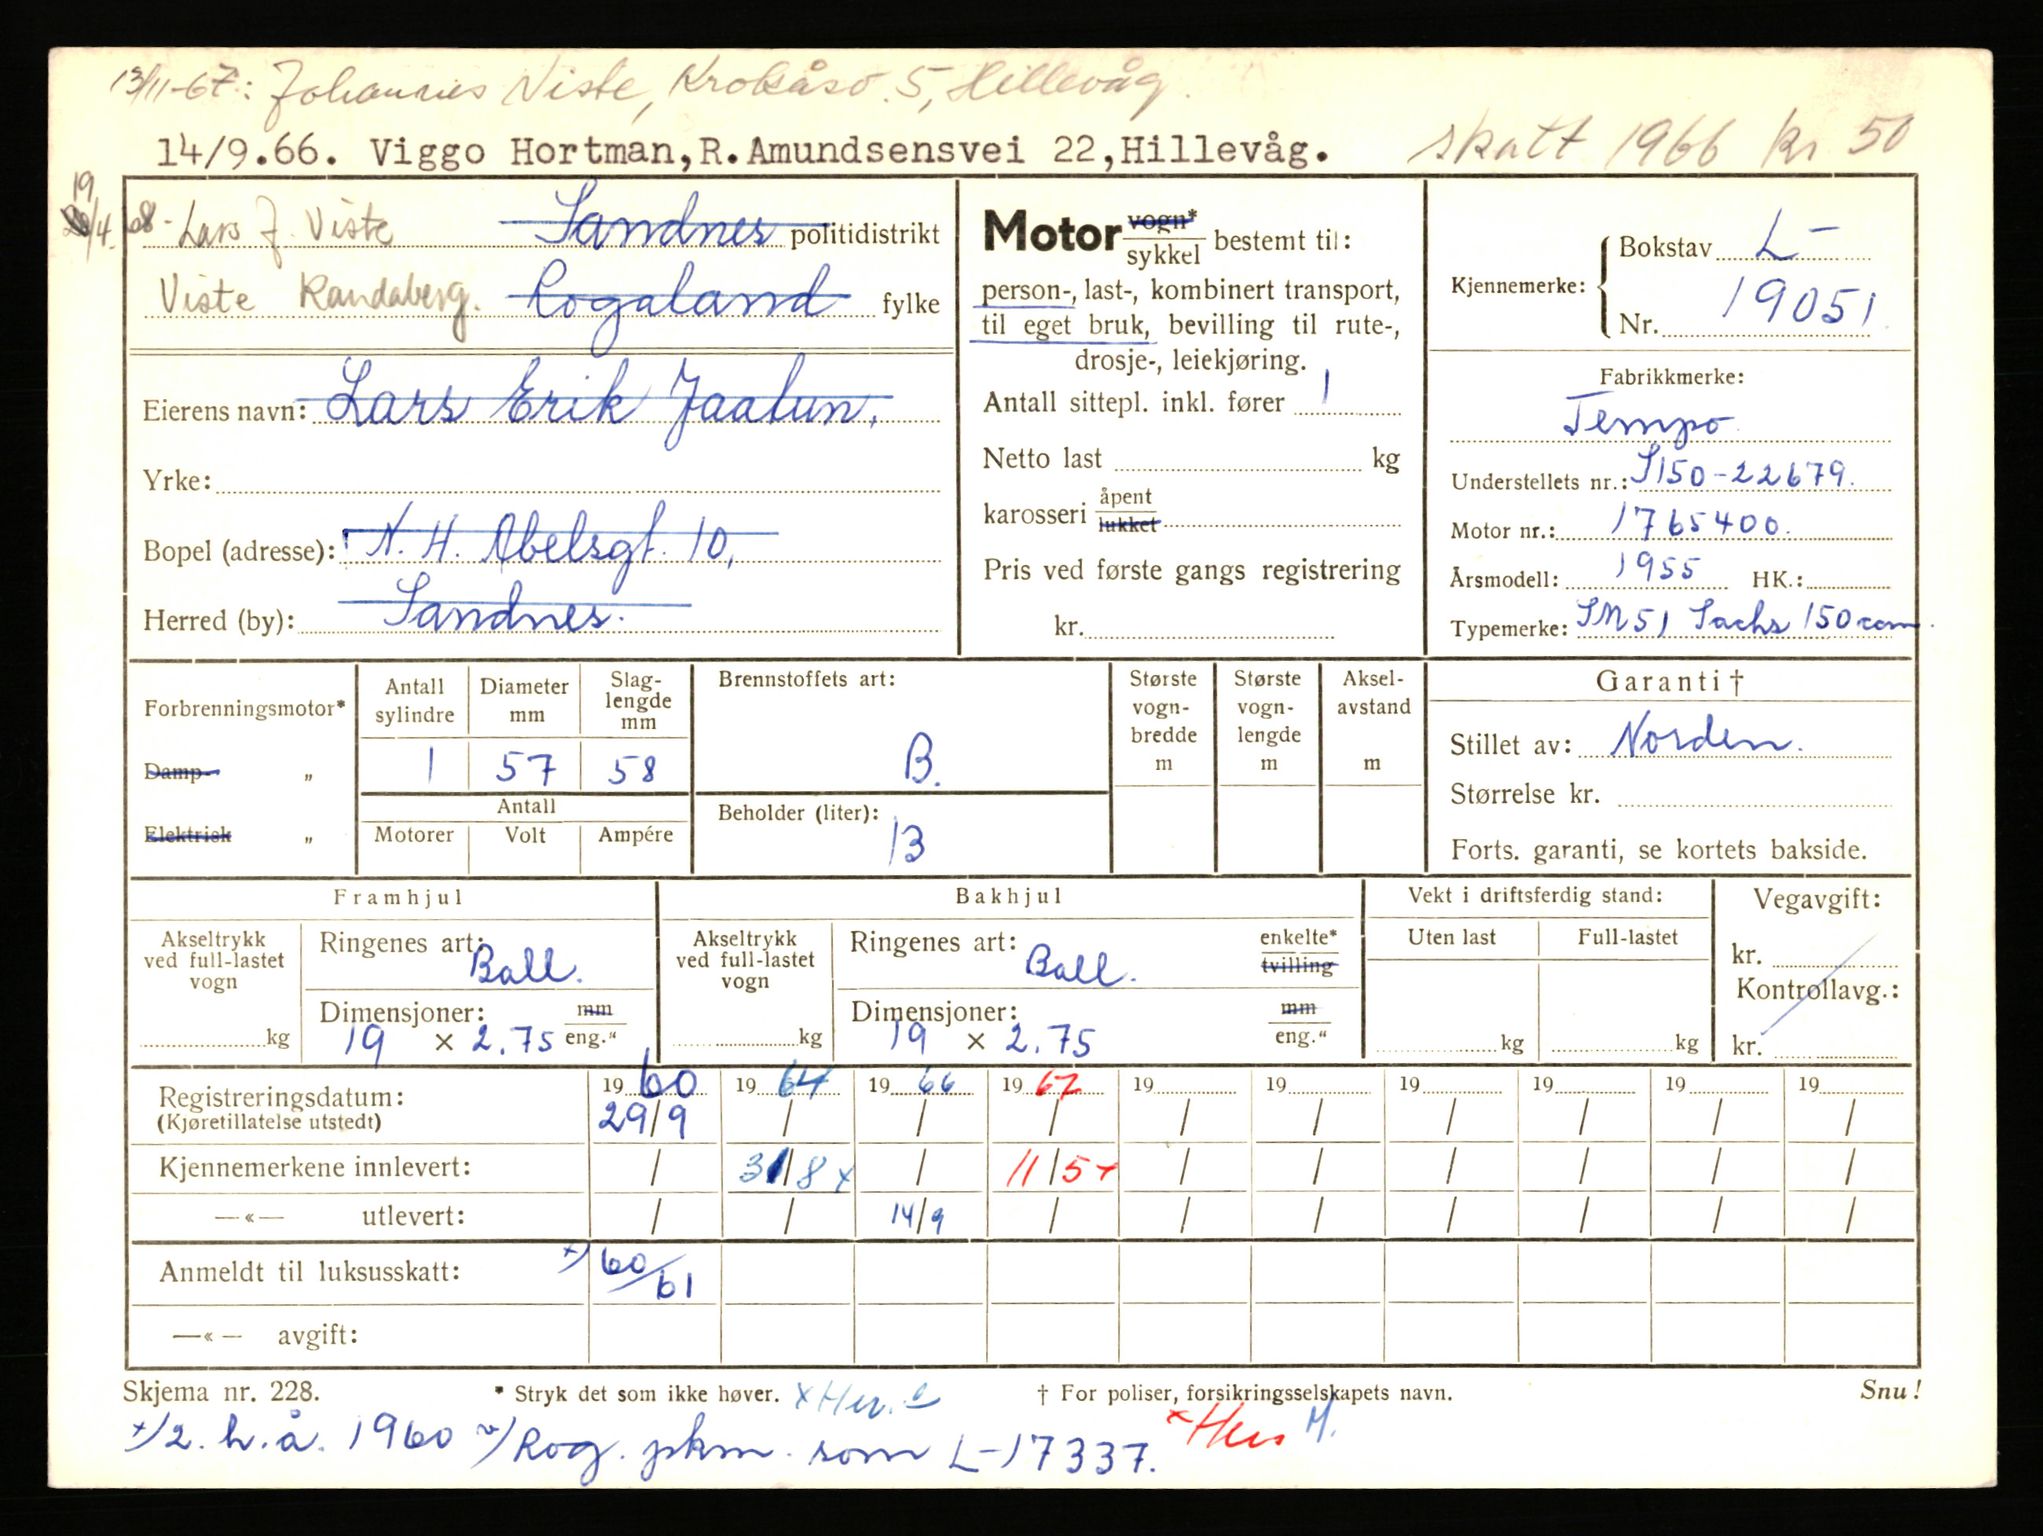 13/11-67: Johannes Viste, Krokåsv. 5, Hillevåg.
14/9.66. Viggo Hortman,R.Amundsensvei 22,Hillevåg. skatt 1966 kr 50
19/4. 68 - Lars J. Viste Sandnes politidistrikt
Viste Randaberg. Rogaland fylke
Eierens navn: Lars Erik Jaatun.
Yrke:
Bopel (adresse): N. H. Abelsgt. 10,
Herred (by): Sandnes.
Motor vogn* / sykkel bestemt til:
person-, last-, kombinert transport,
til eget bruk, bevilling til rute-,
drosje-, leiekjøring.
Antall sittepl. inkl. fører 1
Netto last kg
karosseri åpent / lukket
Pris ved første gangs registrering
kr.
Kjennemerke: Bokstav L-
Nr. 19051
Fabrikkmerke:
Tempo
Understellets nr.: S150-22679.
Motor nr.: 1765400.
Årsmodell: 1955 HK.:
Typemerke: SM51 Sachs 150 ccm.
Forbrenningsmotor*
Damp- „
Elektrisk „
Antall sylindre 1
Diameter mm 57
Slaglengde mm 58
Antall
Motorer Volt Ampére
Brennstoffets art:
B.
Beholder (liter):
13
Største vognbredde m
Største vognlengde m
Akselavstand m
Garanti †
Stillet av: Norden.
Størrelse kr.
Forts. garanti, se kortets bakside.
Framhjul
Akseltrykk ved full-lastet vogn kg
Ringenes art: Ball.
Dimensjoner: mm / eng."
19 x 2.75
Bakhjul
Akseltrykk ved full-lastet vogn kg
Ringenes art: Ball. enkelte* / tvilling
Dimensjoner: mm / eng."
19 x 2.75
Vekt i driftsferdig stand:
Uten last Full-lastet
kg kg
Vegavgift:
kr.
Kontrollavg.:
kr.
Registreringsdatum: 1960 1964 1966 1967 19 19 19 19 19 19
(Kjøretillatelse utstedt) 29/9 / / / / / / / / /
Kjennemerkene innlevert: / 31/8 x / 11/5 x / / / / / /
—«— utlevert: / / 14/9 / / / / / / /
Anmeldt til luksusskatt: +) 60/61
—«— avgift:
Skjema nr. 228. * Stryk det som ikke høver. † For poliser, forsikringsselskapets navn. Snu!
+)2. h.å. 1960 Rog. pkm. som L-17337.